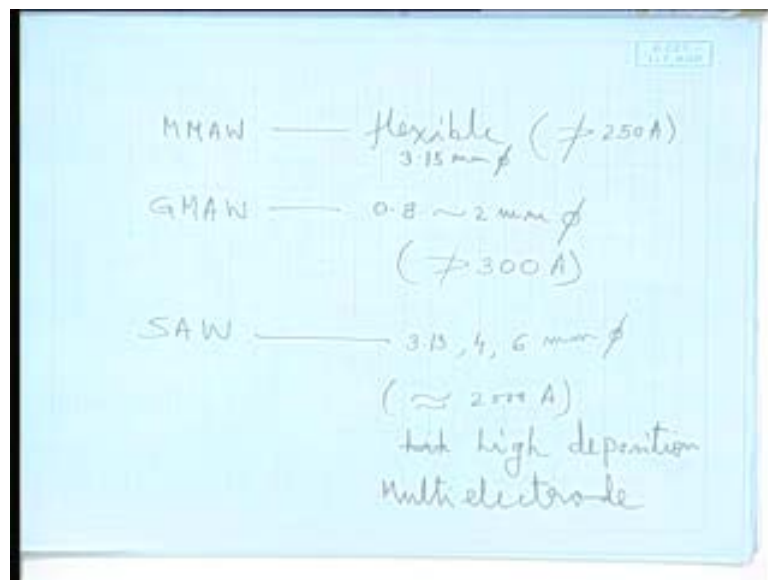 MMAW —— flexible (≯ 250A)
3.15 mm ϕ
GMAW —— 0.8 ~ 2 mm ϕ
(≯ 300 A)
SAW ——— 3.15, 4, 6 mm ϕ
(≈ 2000 A)
high deposition
Multi electrode